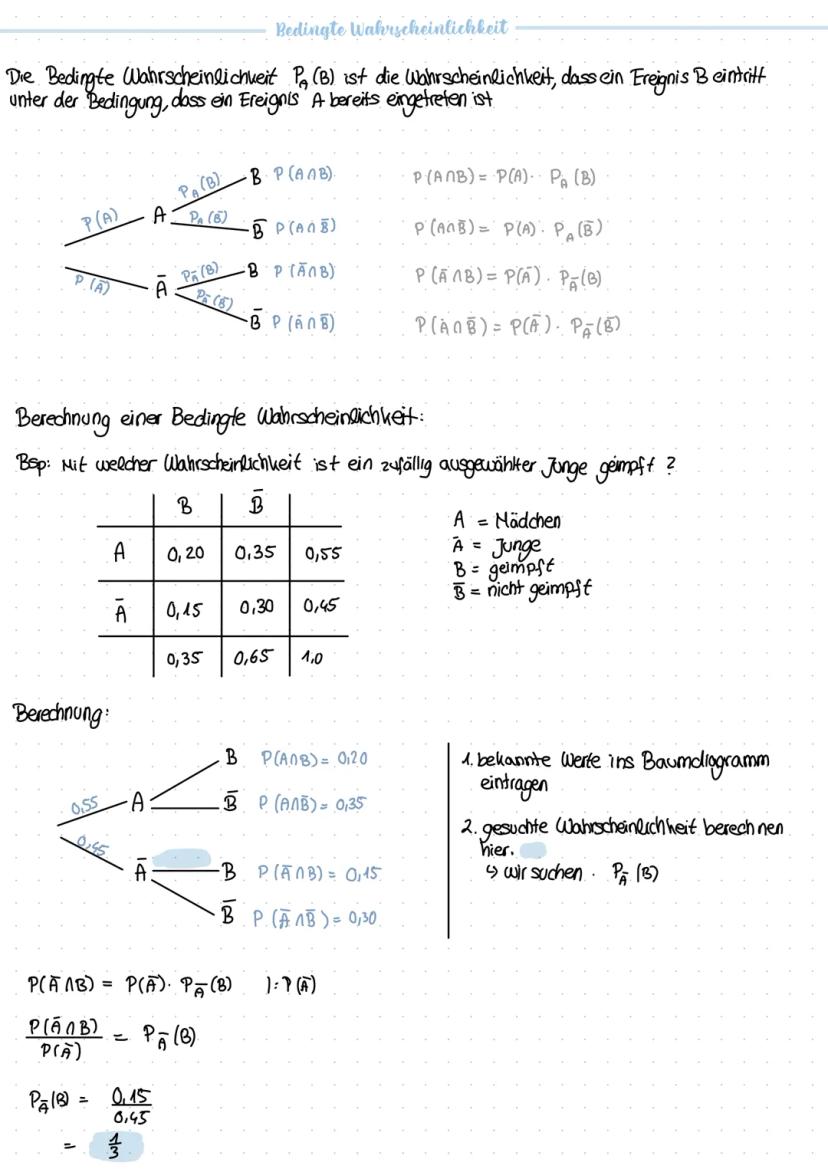 Bedingte Wahrscheinlichkeit
Die Bedingte Wahrscheinlichkeit P_A(B) ist die Wahrscheinlichkeit, dass ein Ereignis B eintritt
unter der Bedingung, dass ein Ereignis A bereits eingetreten ist
P(A) A P_A(B) B P(A∩B) P(A∩B) = P(A) · P_A(B)
P_A(B̅) B̅ P(A∩B̅) P(A∩B̅) = P(A) · P_A(B̅)
P(A̅) A̅ P_A̅(B) B P(A̅∩B) P(A̅∩B) = P(A̅) · P_A̅(B)
P_A̅(B̅) B̅ P(A̅∩B̅) P(A̅∩B̅) = P(A̅) · P_A̅(B̅)
Berechnung einer Bedingte Wahrscheinlichkeit:
Bsp: Mit welcher Wahrscheinlichkeit ist ein zufällig ausgewählter Junge geimpft ?
B B̅
A 0,20 0,35 0,55
A̅ 0,15 0,30 0,45
0,35 0,65 1,0
A = Mädchen
A̅ = Junge
B = geimpft
B̅ = nicht geimpft
Berechnung:
0,55 A B P(A∩B) = 0,20
B̅ P(A∩B̅) = 0,35
0,45 A̅ B P(A̅∩B) = 0,15
B̅ P(A̅∩B̅) = 0,30
1. bekannte Werte ins Baumdiagramm
eintragen
2. gesuchte Wahrscheinlichkeit berechnen
hier.
↳ wir suchen · P_A̅(B)
P(A̅∩B) = P(A̅) · P_A̅(B) |:P(A̅)
P(A̅∩B)/P(A̅) = P_A̅(B)
P_A̅(B) = 0,15/0,45
= 1/3